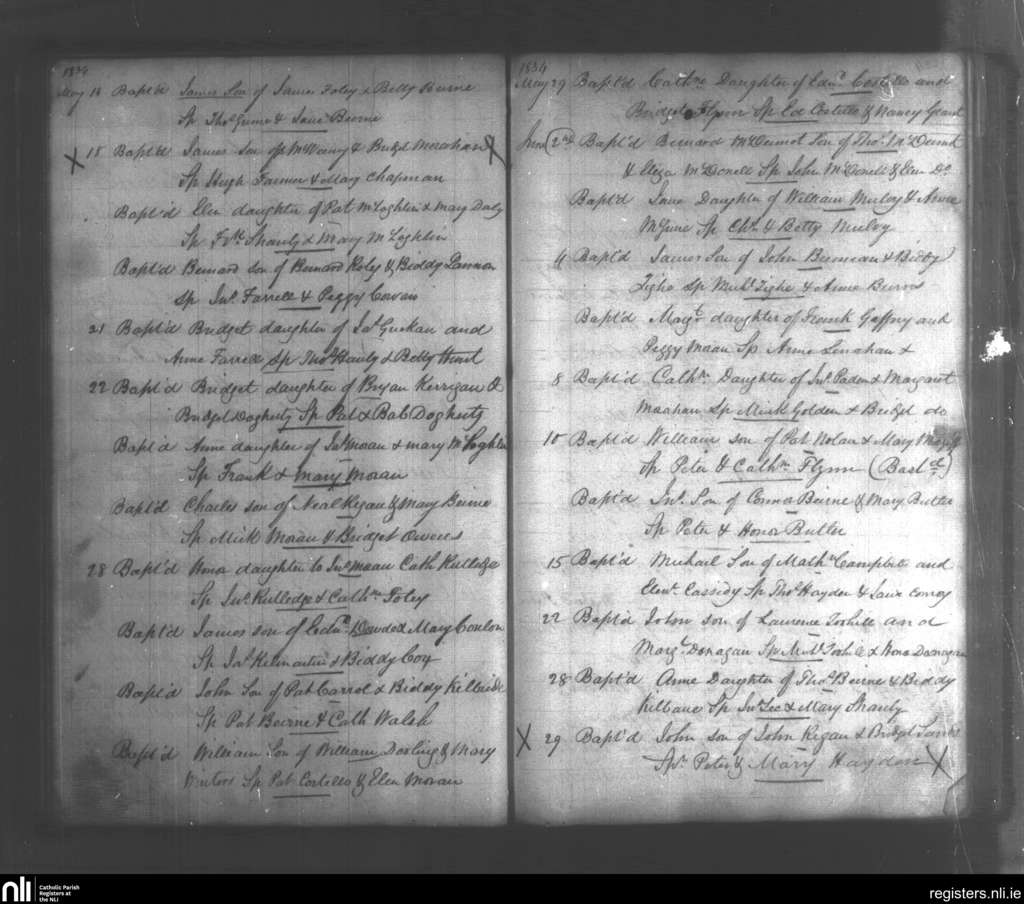 1834
May 18 Bapt'd James Son of James Foley & Betty Beirne
Sp Thos Gunne & Jane Beirne
X 18 Bapt'd James son of McNamy & Bridget Monahan X
Sp Hugh Farmer & Mary Chapman
Bapt'd Elen daughter of Pat McLoghlin & Mary Daly
Sp Frk Shanly & Mary McLoghlin
Bapt'd Bernard son of Bernard Roly & Biddy Lannon
Sp Jno. Farrell & Peggy Cowan
21 Bapt'd Bridget daughter of Jas Guckan and
Anne Farrell Sp Thos Hanly & Betty Hunt
22 Bapt'd Bridget daughter of Bryan Kerrigan &
Bridget Dogherty Sp Pat & Bab Dogherty
Bapt'd Anne daughter of Jno Moran & Mary McLoghlin
Sp Frank & Mary Moran
Bapt'd Charles son of Neal Regan & Mary Beirne
Sp Mick Moran & Bridget Owens
28 Bapt'd Honor daughter to Jno Moran Cath Rutledge
Sp Jno. Rutledge & Cathne Foley
Bapt'd James son of Edmd Dowd & Mary Conlon
Sp Jas Kilmartin & Biddy Cox
Bapt'd John Son of Pat Carrol & Biddy Kilbride
Sp Pat Beirne & Cath Walsh
Bapt'd William Son of William Dorling & Mary
Winters Sp Pat Costello & Elen Moran
1834
May 29 Bapt'd Cathne Daughter of Edmd Costello and
Bridget Flynn Sp Ed Costello & Nancy Grant
June 2nd Bapt'd Bernard McDermot Son of Thos. McDermot
& Eliza McDonell Sp John McDonell & Elen Do.
Bapt'd Jane Daughter of William Mulvy & Anne
McGune Sp Chs. & Betty Mulvy
4 Bapt'd James Son of John Brennan & Biddy
Tighe Sp Michl Tighe & Anne Burns
Bapt'd Margt daughter of Frank Gaffny and
Peggy Moran Sp Anne Lenahan &
8 Bapt'd Cathne Daughter of Jno. Paden & Margaret
Meehan Sp Mick Golden & Bridget do
10 Bapt'd William son of Pat Nolan & Mary
Sp Peter & Cathne Flynn (Bastd)
Bapt'd Jno. Son of Connor Beirne & Mary Butler
Sp Peter & Honor Butler
15 Bapt'd Michael Son of Mathw Campble and
Elenr. Cassidy Sp Thos Hayden & Jane Conroy
22 Bapt'd John son of Laurence Toohill and
Margt Donagan Sp Michl Toohill & Hono Donagan
28 Bapt'd Anne Daughter of Thos Beirne & Biddy
Kilbane Sp Jno Lee & Mary Shanly
X 29 Bapt'd John son of John Regan & Bridget
Sps Peter & Mary Hayden X
nli
Catholic Parish
Registers at
the NLI
registers.nli.ie